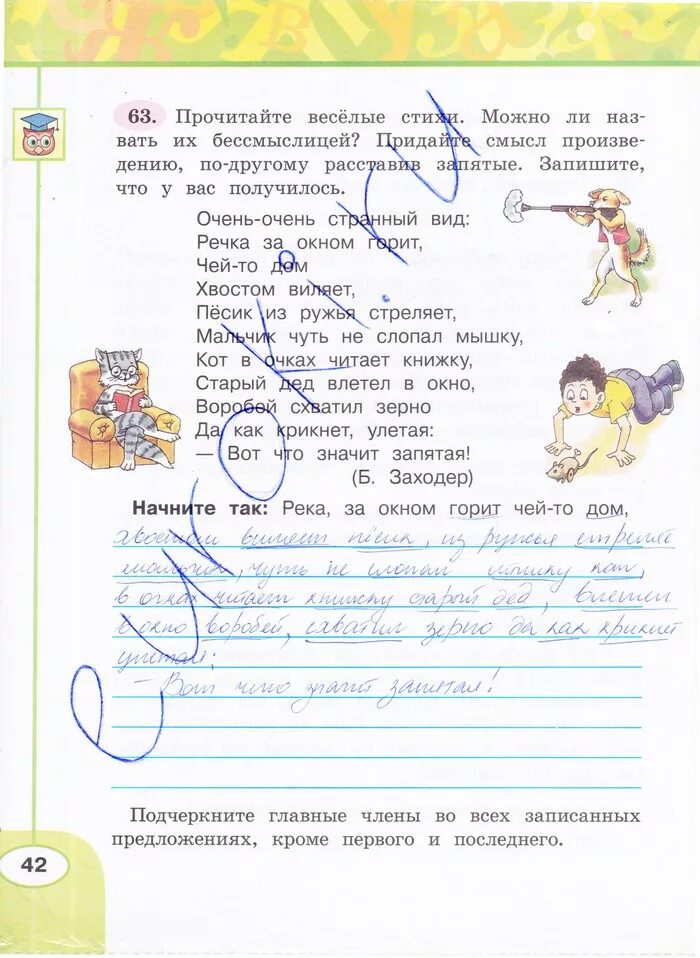 63. Прочитайте весёлые стихи. Можно ли наз-
вать их бессмыслицей? Придайте смысл произве-
дению, по-другому расставив запятые. Запишите,
что у вас получилось.
Очень-очень странный вид:
Речка за окном горит,
Чей-то дом
Хвостом виляет,
Пёсик из ружья стреляет,
Мальчик чуть не слопал мышку,
Кот в очках читает книжку,
Старый дед влетел в окно,
Воробей схватил зерно
Да как крикнет, улетая:
— Вот что значит запятая!
(Б. Заходер)
Начните так: Река, за окном горит чей-то дом,
хвостом виляет пёсик, из ружья стреляет
мальчик, чуть не слопал мышку кот,
в очках читает книжку старый дед, влетел
в окно воробей, схватил зерно да как крикнет
улетая:
— Вот что значит запятая!
Подчеркните главные члены во всех записанных
предложениях, кроме первого и последнего.
42
euroki.ru